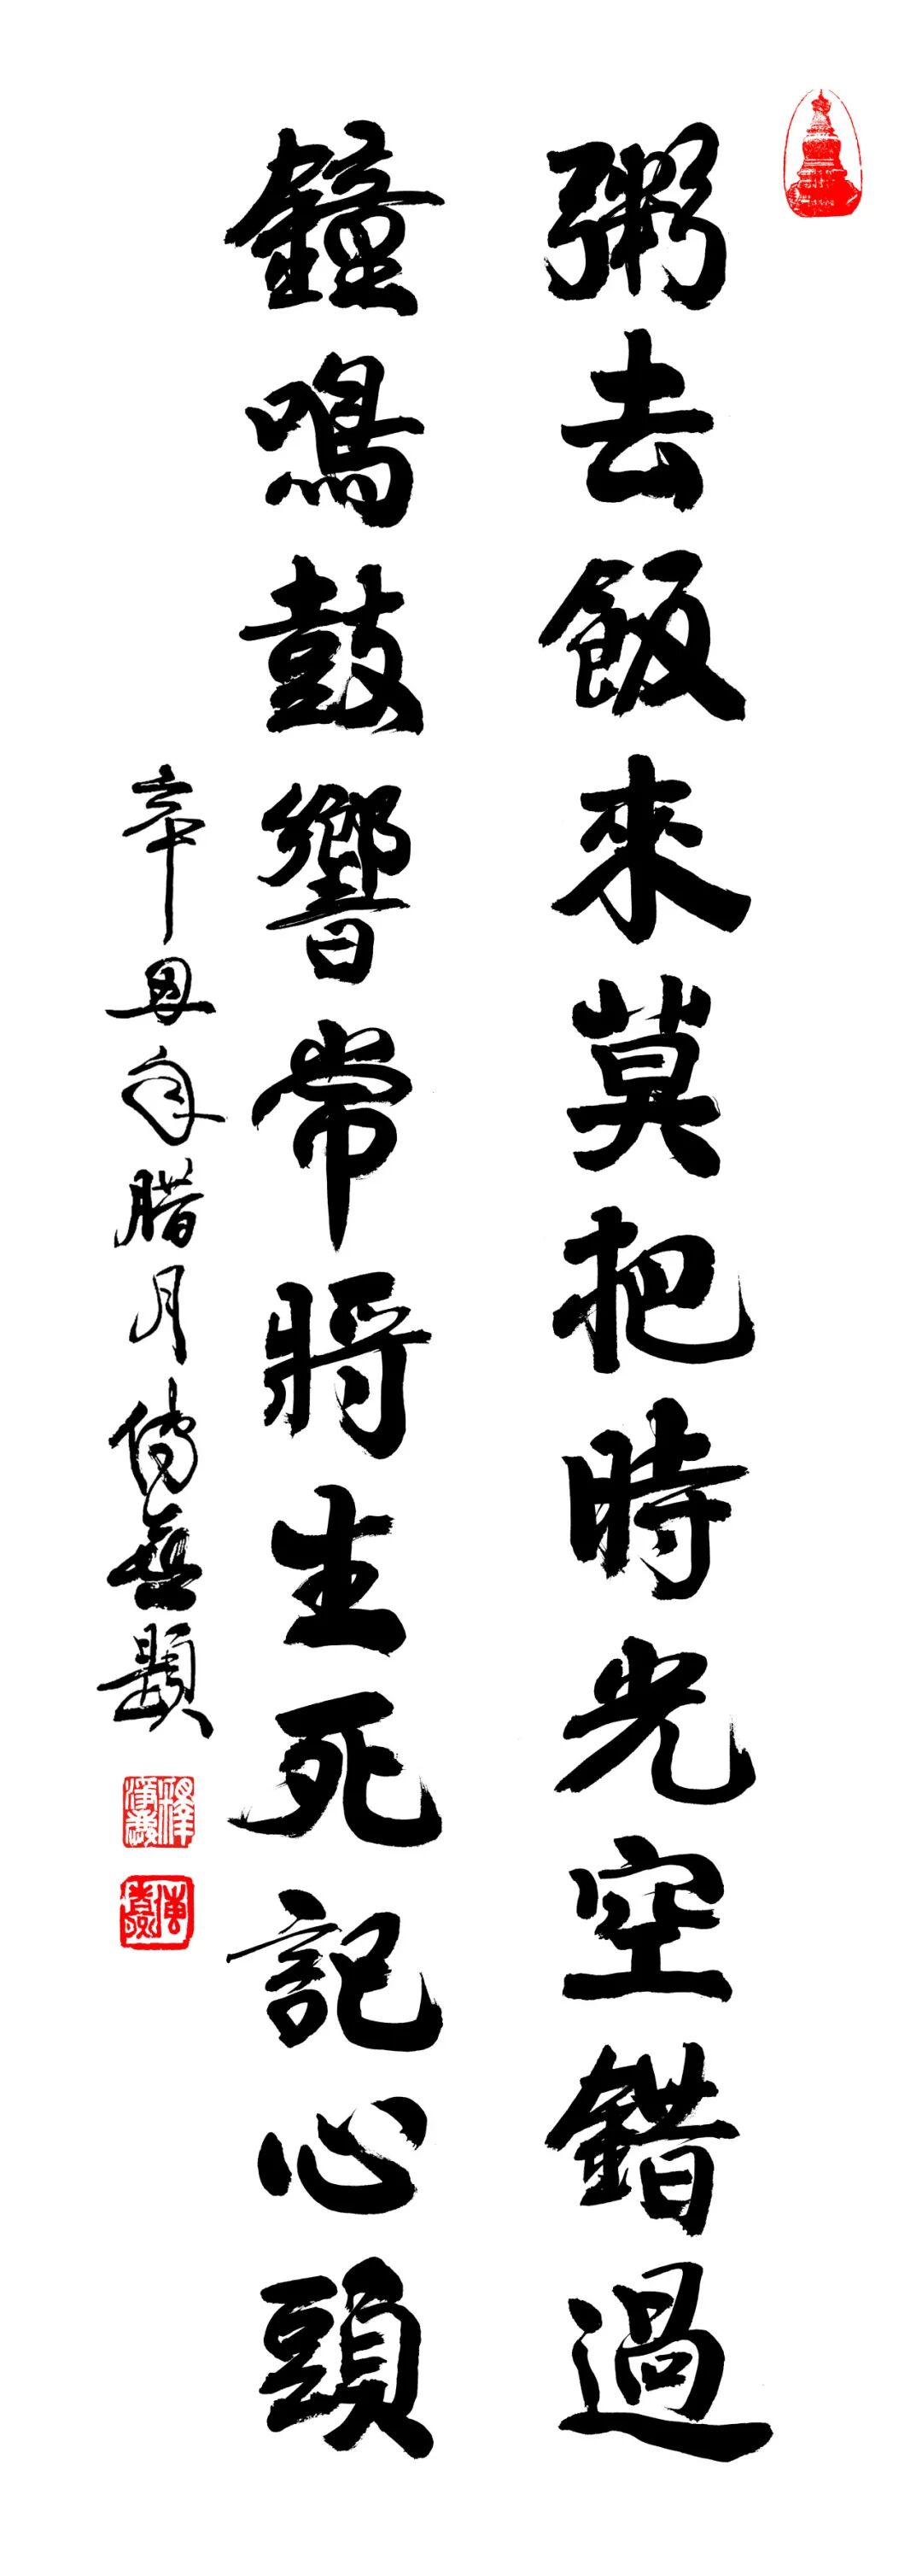 粥去飯來莫把時光空錯過
鐘鳴鼓響常將生死記心頭
辛丑年腊月傳喜題